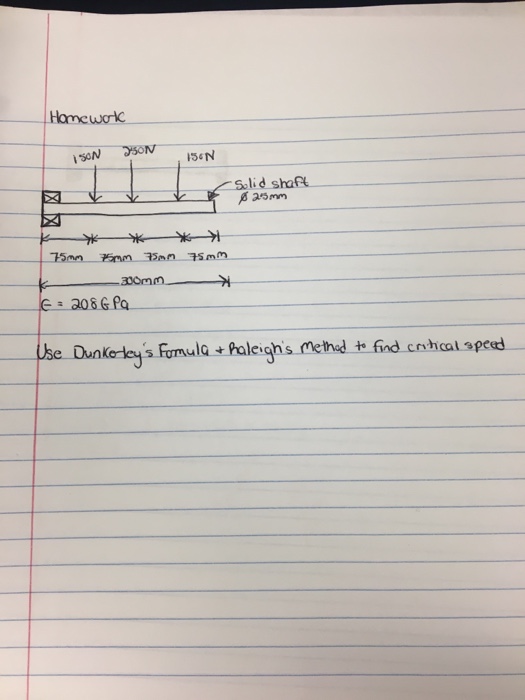 Homework
150N 250N 150N
Solid shaft
ø 25mm
75mm 75mm 75mm 75mm
300mm
E = 208GPa
Use Dunkerley's Fomula + Raleigh's method to find critical speed